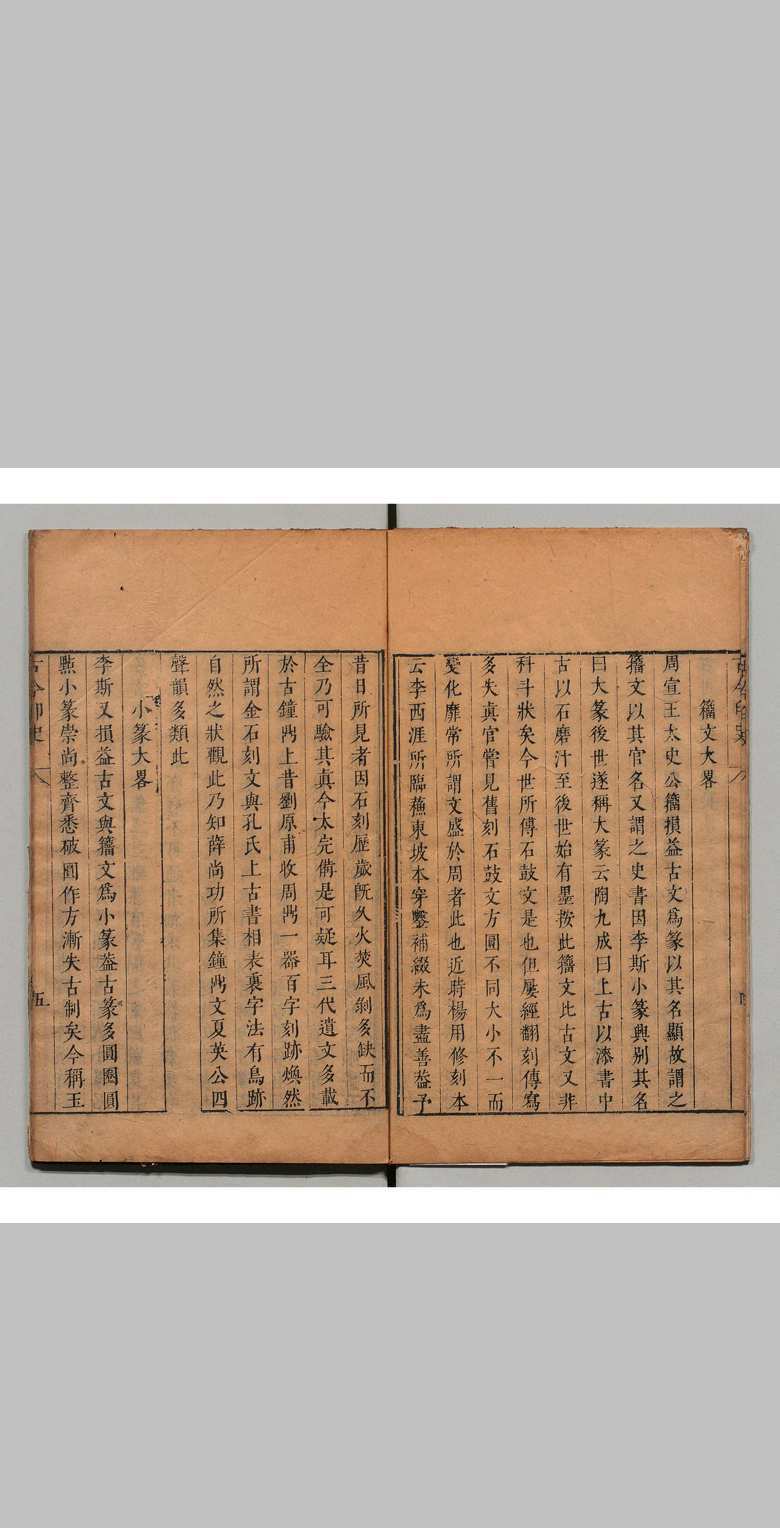 籀文大畧
周宣王太史公籀損益古文爲篆以其名顯故謂之
籀文以其官名又謂之史書因李斯小篆興别其名
曰大篆後世遂稱大篆云陶九成曰上古以漆書中
古以石磨汁至後世始有墨按此籀文比古文又非
科斗狀矣今世所傳石鼓文是也但屢經翻刻傳寫
多失真官嘗見舊刻石鼓文方圓不同大小不一而
變化靡常所謂文盛於周者此也近時楊用修刻本
云李西涯所臨蘓東坡本穿鑿補綴未爲盡善葢予
昔日所見者因石刻歷歲旣久火焚風剝多缺而不
全乃可驗其真今太完備是可疑耳三代遺文多載
於古鐘鼎上昔劉原甫收周鼎一器百字刻跡煥然
所謂金石刻文與孔氏上古書相表裏字法有鳥跡
自然之狀觀此乃知薛尚功所集鐘鼎文夏英公四
聲韻多類此
小篆大畧
李斯又損益古文與籀文爲小篆葢古篆多圓圈圓
點小篆崇尚整齊悉破圓作方漸失古制矣今稱玉
古今印史
五